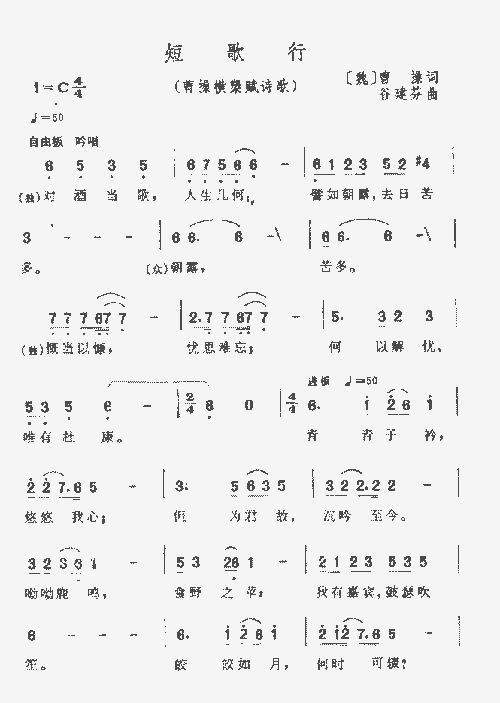 短 歌 行
1=C 4/4
(曹操横槊赋诗歌)
〔魏〕曹 操词
谷建芬曲
♩=50
自由板 吟唱
6 5 3 5 | 6 7 5 6 6 - | 6 1 2 3 5 2 #4
(独)对 酒 当 歌, 人生几何; 譬如朝露,去日 苦
3 - - - | 6 6. 6 -\ | 6 6. 6 -\
多。 (众)朝露, 苦多。
7 7 7 6 7 7 7 - | 2. 7 7 6 7 7 - | 5. 3 2 3
(独)慨当以慷, 忧思难忘; 何 以解忧,
5 3 5 6 - | 2/4 6 0 | 4/4 6. 1 2 6 1
进板 ♩=50
唯有杜 康。 青 青子 衿,
2 2 7. 6 5 - | 3. 5 6 3 5 | 3 2 2. 2 2 -
悠悠 我心; 但 为君 故, 沉吟 至今。
3 2 3 6 1 - | 5 3 2 6 1 - | 2 1 2 3 5 3 5
呦呦鹿 鸣, 食野 之 苹; 我有嘉宾,鼓瑟吹
6 - - - | 6. 1 2 6 1 | 2 1 2 7. 6 5 -
笙。 皎 皎如 月, 何时 可辍?